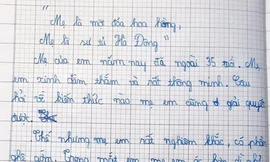 "Mẹ là một đóa hoa hồng,
Mẹ là sư tử Hà Đông"
Mẹ của em năm nay đã ngoài 35 rồi. Mẹ
em xinh đằm thắm và rất thông minh. Câu
hỏi về kiến thức nào mẹ em cũng giải quyết
được.
Thế nhưng mẹ em rất nghiêm khắc, có phần
ghê gớm. Trong mắt em mẹ em